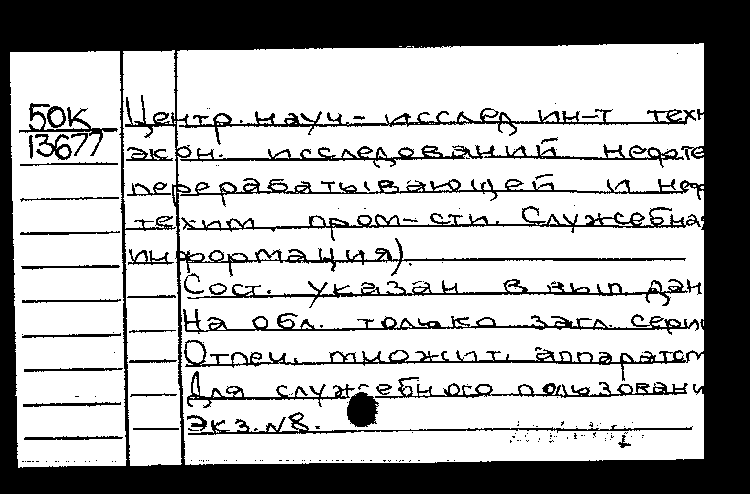 50К
13677
Центр. науч.- исслед ин-т техн
экон. исследований нефте
перерабатывающей и неф
техим. пром-сти. Служебна
информация).
Сост. указан в вып дан
На обл. только загл сери
Отпеч. множит. аппаратом
Для служебного пользовани
Экз. №8.